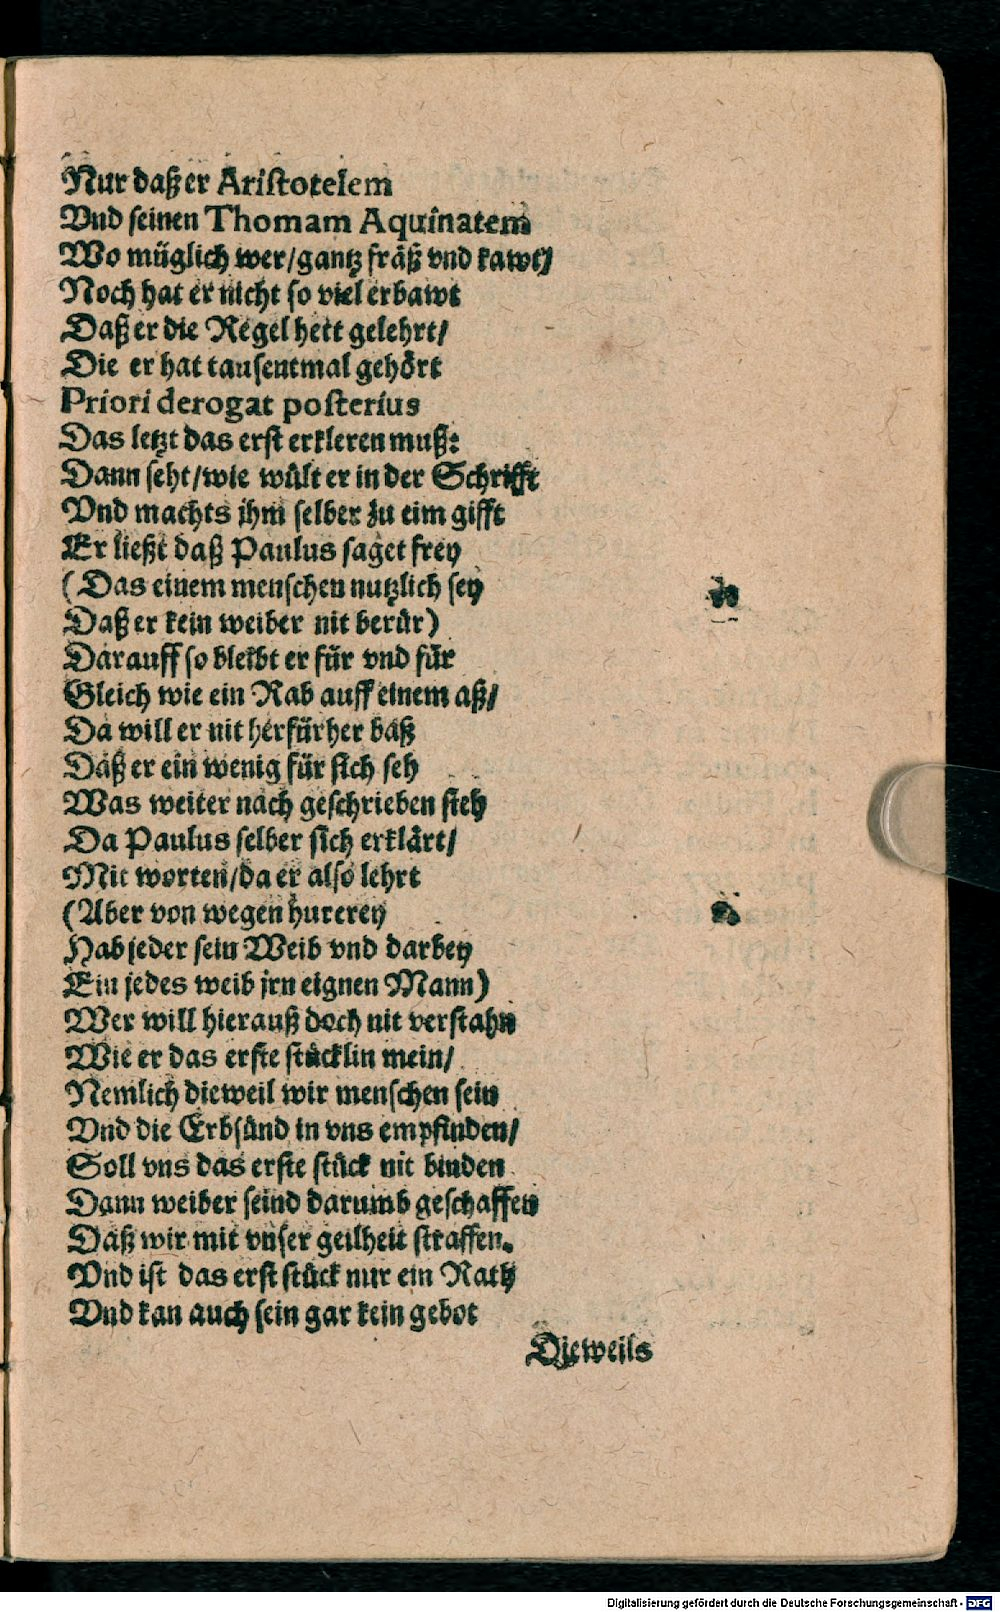 Nur daß er Aristotelem
Vnd seinen Thomam Aquinatem
Wo müglich wer/gantz fräß vnd kawt/
Noch hat er nicht so viel erbawt
Daß er die Regel hett gelehrt/
Die er hat tausentmal gehört
Priori derogat posterius
Das letzt das erst erkleren muß:
Dann seht/wie wült er in der Schrifft
Vnd machts ihm selber zu eim gifft
Er ließt daß Paulus saget frey
(Das einem menschen nutzlich sey
Daß er kein weiber nit berür)
Darauff so bleibt er für vnd für
Gleich wie ein Rab auff einem aß/
Da will er nit herfürher baß
Daß er ein wenig für sich seh
Was weiter nach geschrieben steh
Da Paulus selber sich erklärt/
Mit worten/da er also lehrt
(Aber von wegen hurerey
Hab jeder sein Weib vnd darbey
Ein jedes weib jrn eignen Mann)
Wer will hierauß doch nit verstahn
Wie er das erste stücklin mein/
Nemlich dieweil wir menschen sein
Vnd die Erbsünd in vns empfinden/
Soll vns das erste stück nit binden
Dann weiber seind darumb geschaffen
Daß wir mit vnser geilheit straffen.
Vnd ist das erst stück nur ein Rath
Vnd kan auch sein gar kein gebot
Dieweils
Digitalisierung gefördert durch die Deutsche Forschungsgemeinschaft - DFG